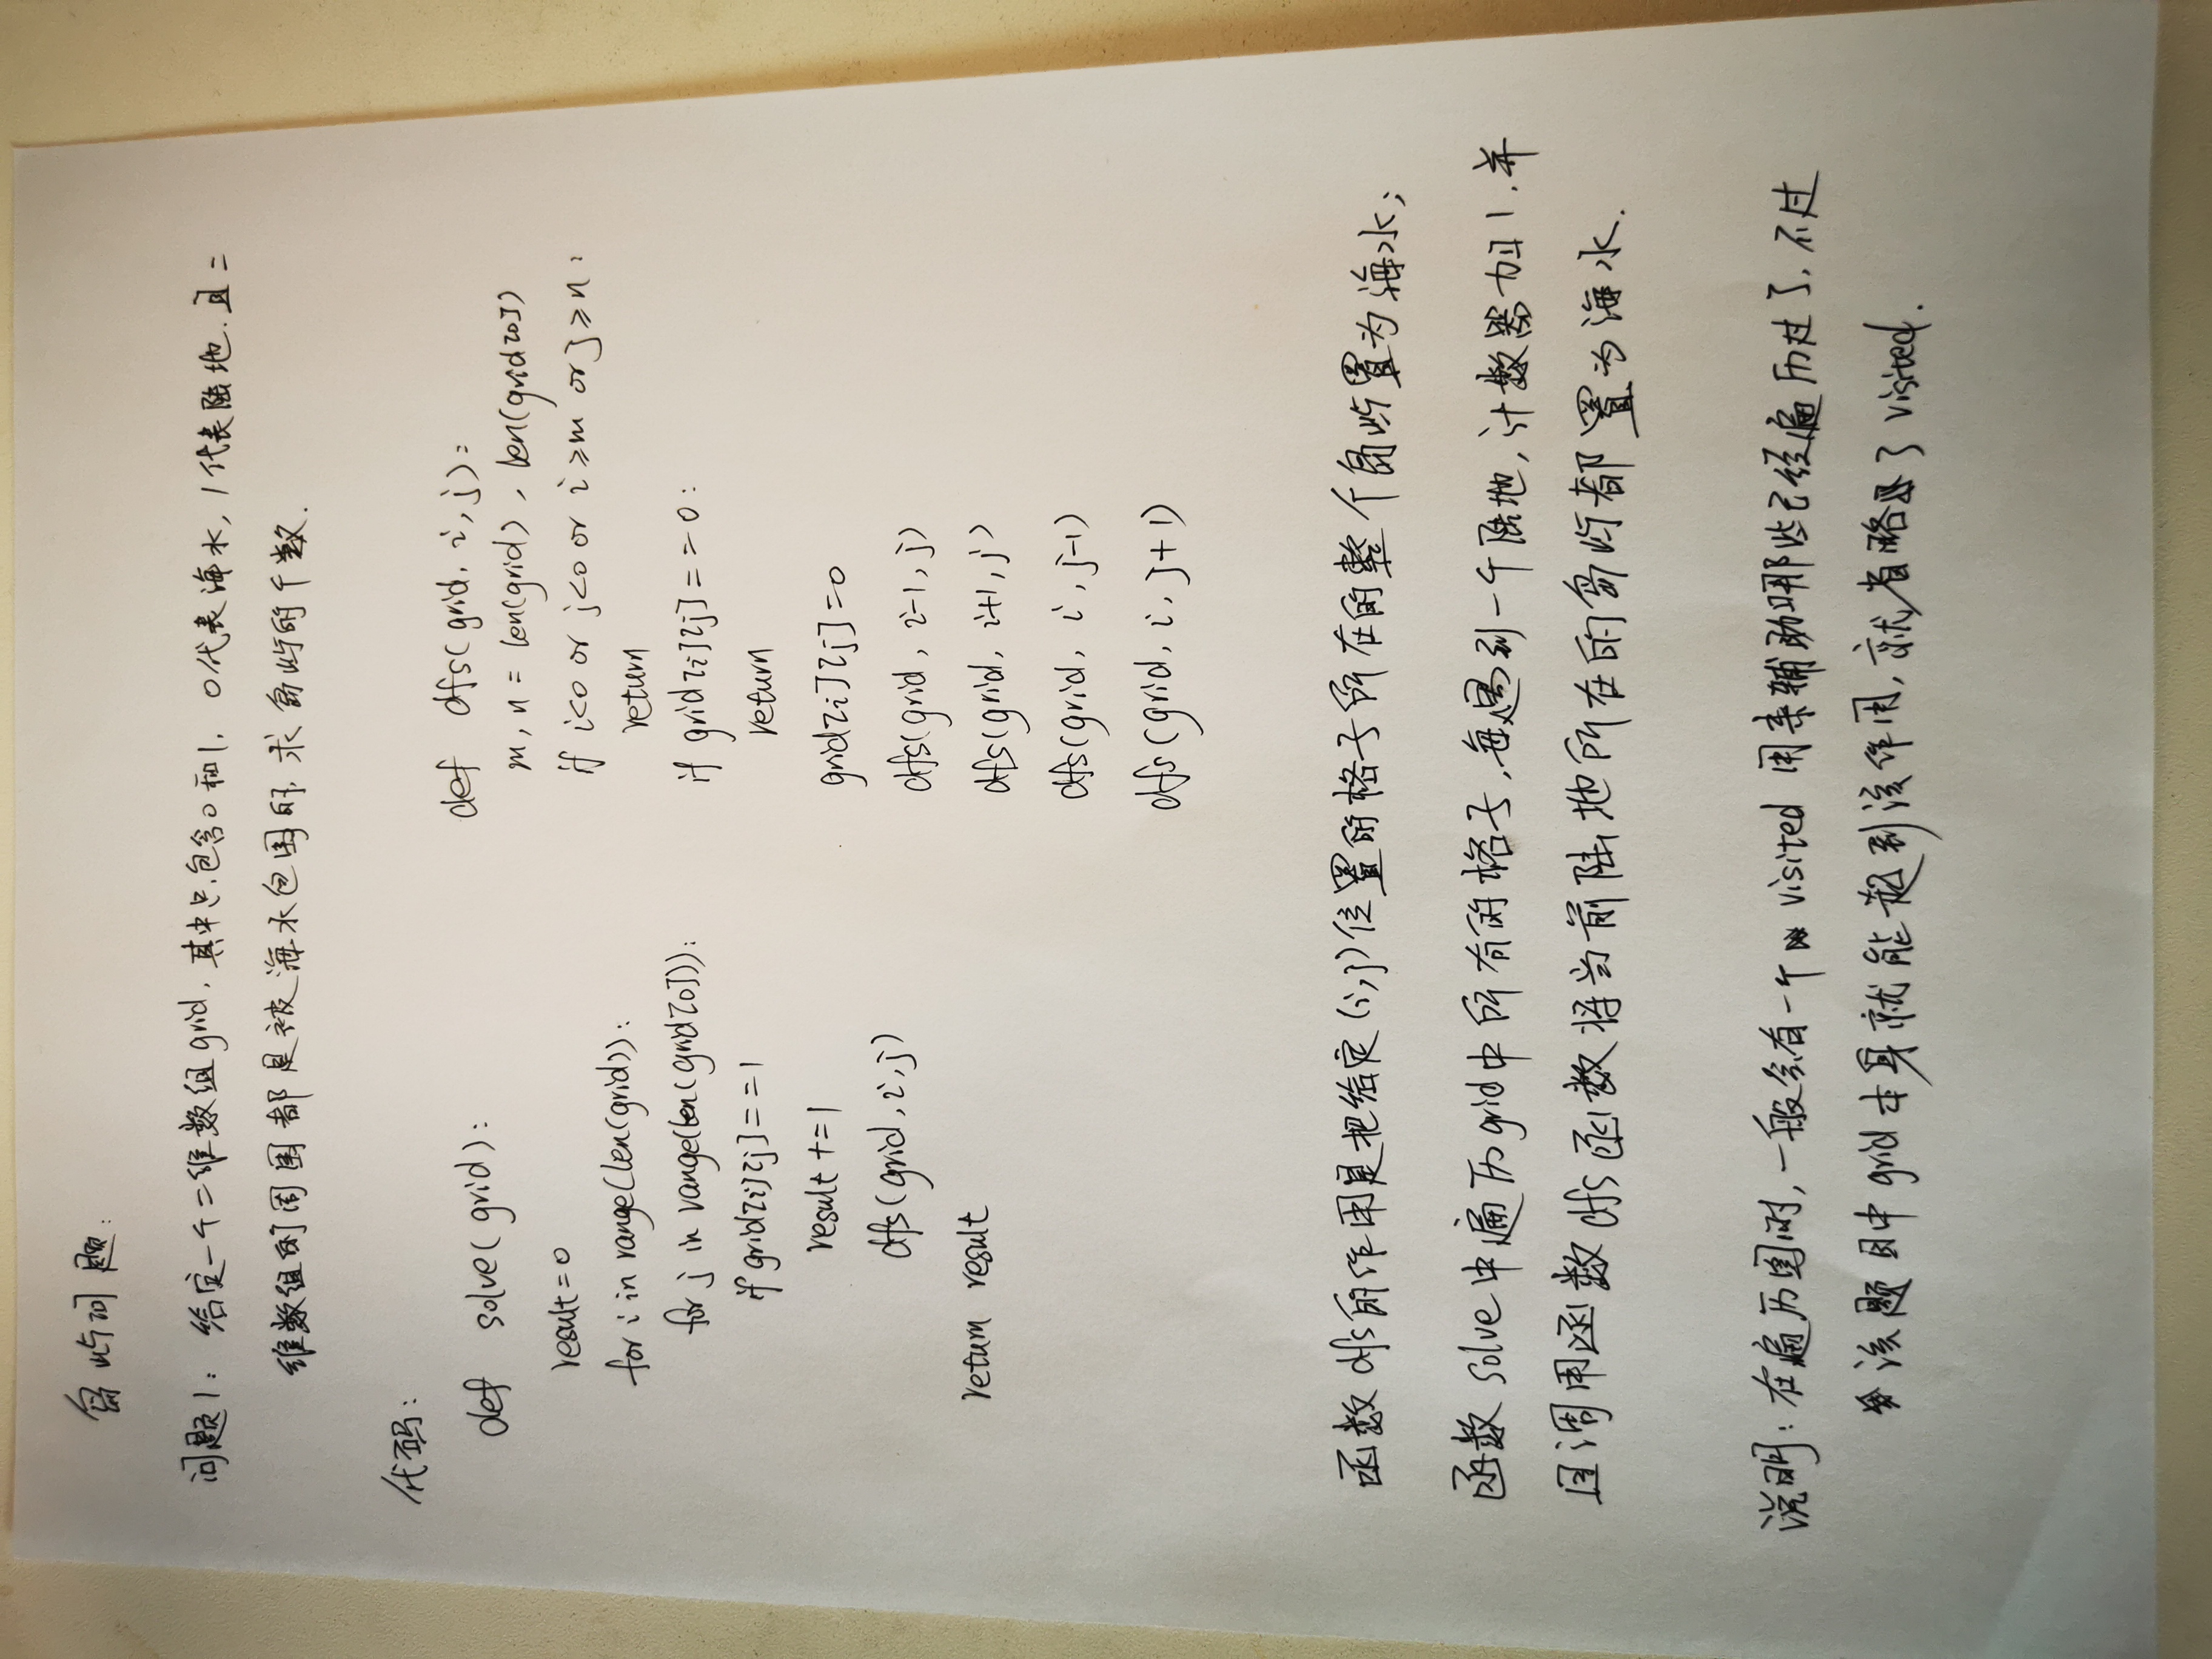 岛屿问题:
问题1: 给定一个二维数组grid, 其中只包含0和1, 0代表海水, 1代表陆地. 且二
维数组的周围都是被海水包围的, 求岛屿的个数.
代码:
def solve(grid):
result=0
for i in range(len(grid)):
for j in range(len(grid[0])):
if grid[i][j]==1
result +=1
dfs(grid,i,j)
return result
def dfs(grid, i, j):
m, n = len(grid), len(grid[0])
if i<0 or j<0 or i≥m or j≥n:
return
if grid[i][j]==0:
return
grid[i][j]=0
dfs(grid, i-1, j)
dfs(grid, i+1, j)
dfs(grid, i, j-1)
dfs(grid, i, j+1)
函数dfs的作用是把给定(i,j)位置的格子所在的整个岛屿置为海水;
函数solve中遍历grid中所有的格子, 每遇到一个陆地, 计数器加1, 并
且调用函数dfs函数将当前陆地所在的岛屿都置为海水.
说明: 在遍历图时, 一般会有一个 visited 用来辅助哪些已经遍历过了, 不过
该题目中grid本身就能起到该作用, 就省略了visited.